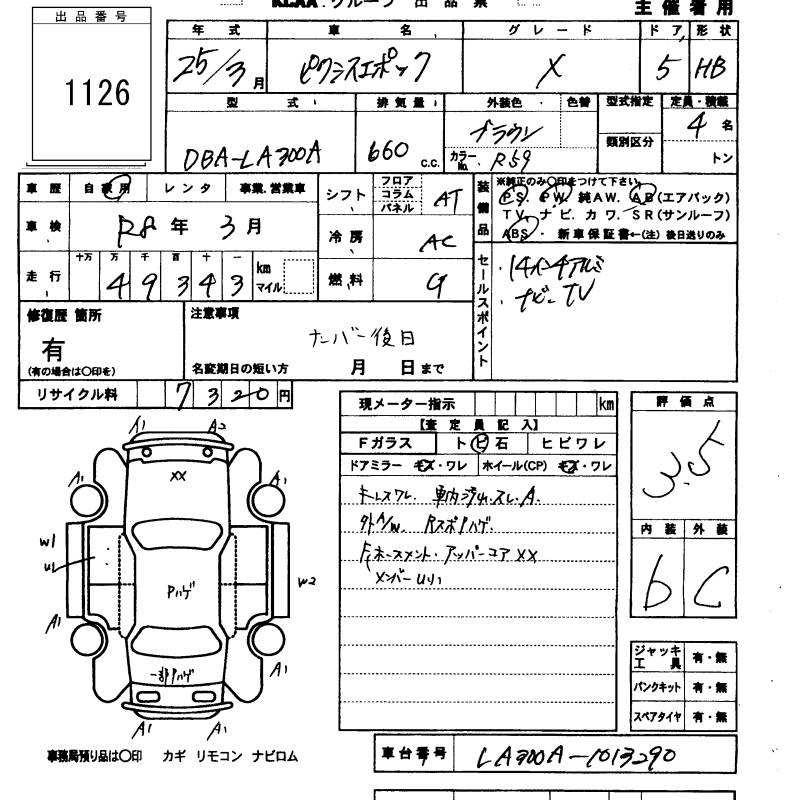 KCAA グループ 出品票
主催者用
出品番号
1126
年式 車名 グレード ドア 形状
25/3月 ピクシスエポック X 5 HB
型式 排気量 外装色 色替 型式指定 定員・積載
DBA-LA300A 660 c.c. ブラウン カラーNo. R59 類別区分 4名 トン
車歴 自家用 レンタ 事業.営業車
車検 R8年 3月
走行 十万 万 千 百 十 一
49343 km マイル
シフト フロア コラム パネル AT
冷房 AC
燃料 G
装備品 ※純正のみ〇印をつけて下さい
PS. PW. 純AW. AB(エアバック)
TV. ナビ. カワ. SR(サンルーフ)
ABS・ 新車保証書←(注) 後日送りのみ
セールスポイント
・14インチアルミ
・ナビ-TV
修復歴 箇所
有
(有の場合は〇印を)
注意事項
ナンバー後日
名変期日の短い方 月 日まで
リサイクル料 7320円
現メーター指示 km
【査定員記入】
Fガラス トビ石 ヒビワレ
ドアミラー キズ・ワレ ホイール(CP) キズ・ワレ
キーレスワレ. 車内汚れ.スレ.A.
外A/W. Rスポイハゲ.
メンバーUリ
評価点
3.5
内装 外装
b C
ジャッキ工具 有・無
パンクキット 有・無
スペアタイヤ 有・無
A1 A2
XX
A1 A1
W1
U1
W2
Pハゲ
A1 A1
一部Pハゲ
A1 A1
事務局預り品は〇印 カギ リモコン ナビロム
車台番号 LA300A-1013290